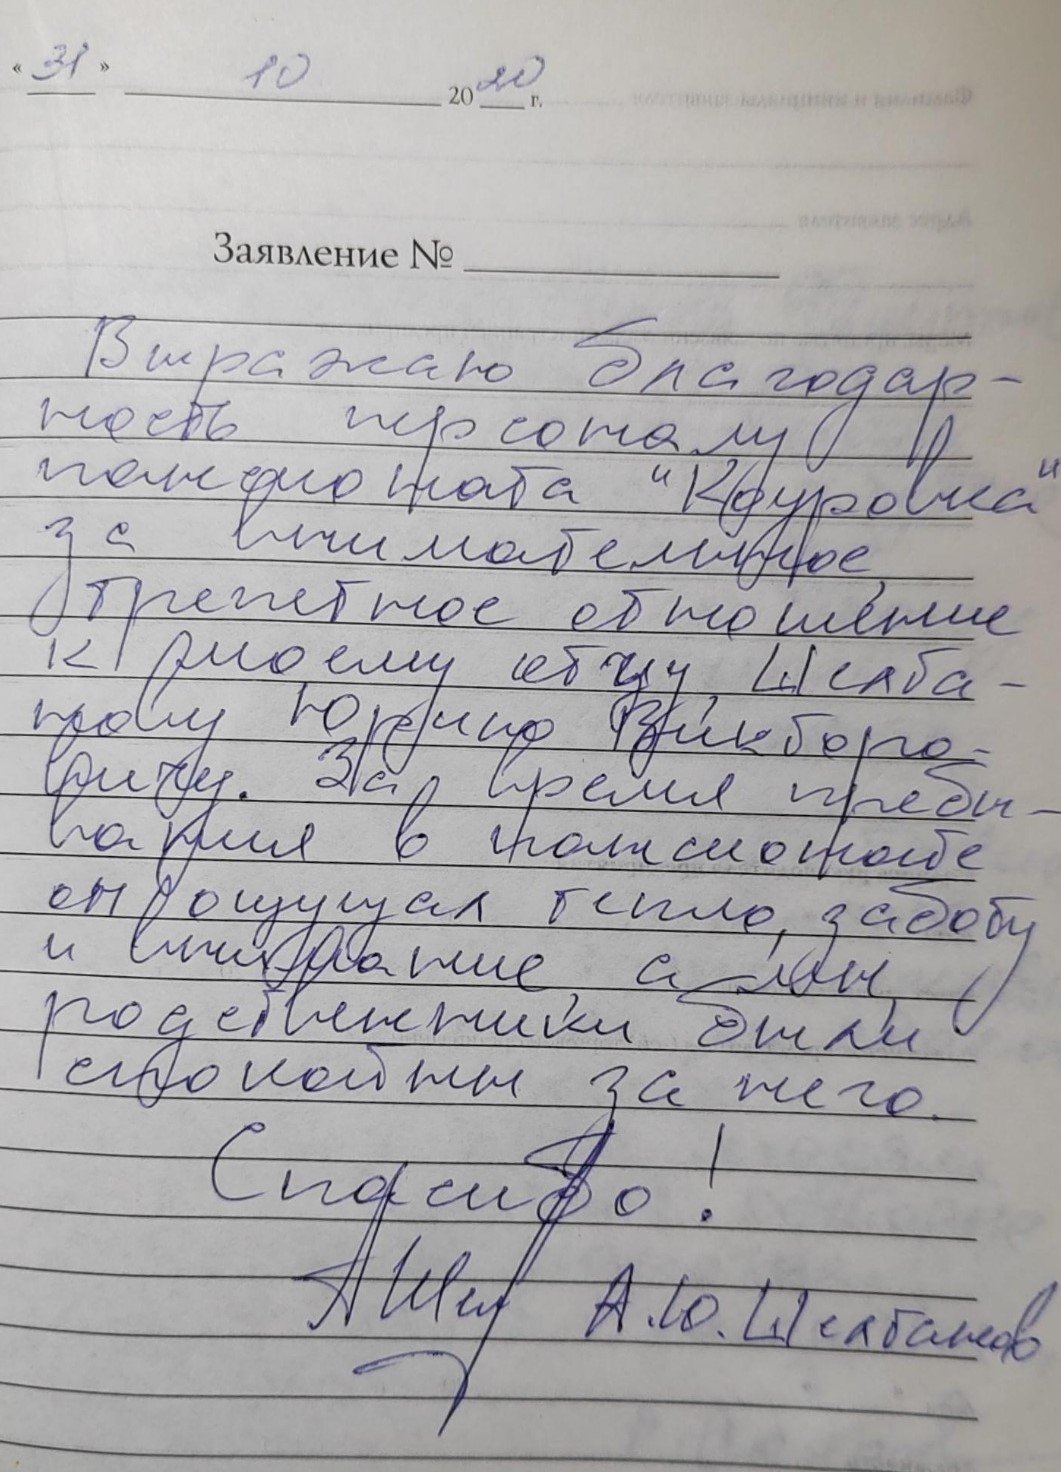 « 31 » 10 2020 г.
Заявление №
Выражаю благодар-
ность персоналу
пансионата "Кауровка"
за внимательное,
трепетное отношение
к моему отцу, Шелба-
нову Юрию Викторо-
вичу. За время пребы-
вания в пансионате
он ощущал тепло, заботу
и внимание, а мы,
родственники были
спокойны за него.
Спасибо!
А.Ю. Шелбанов